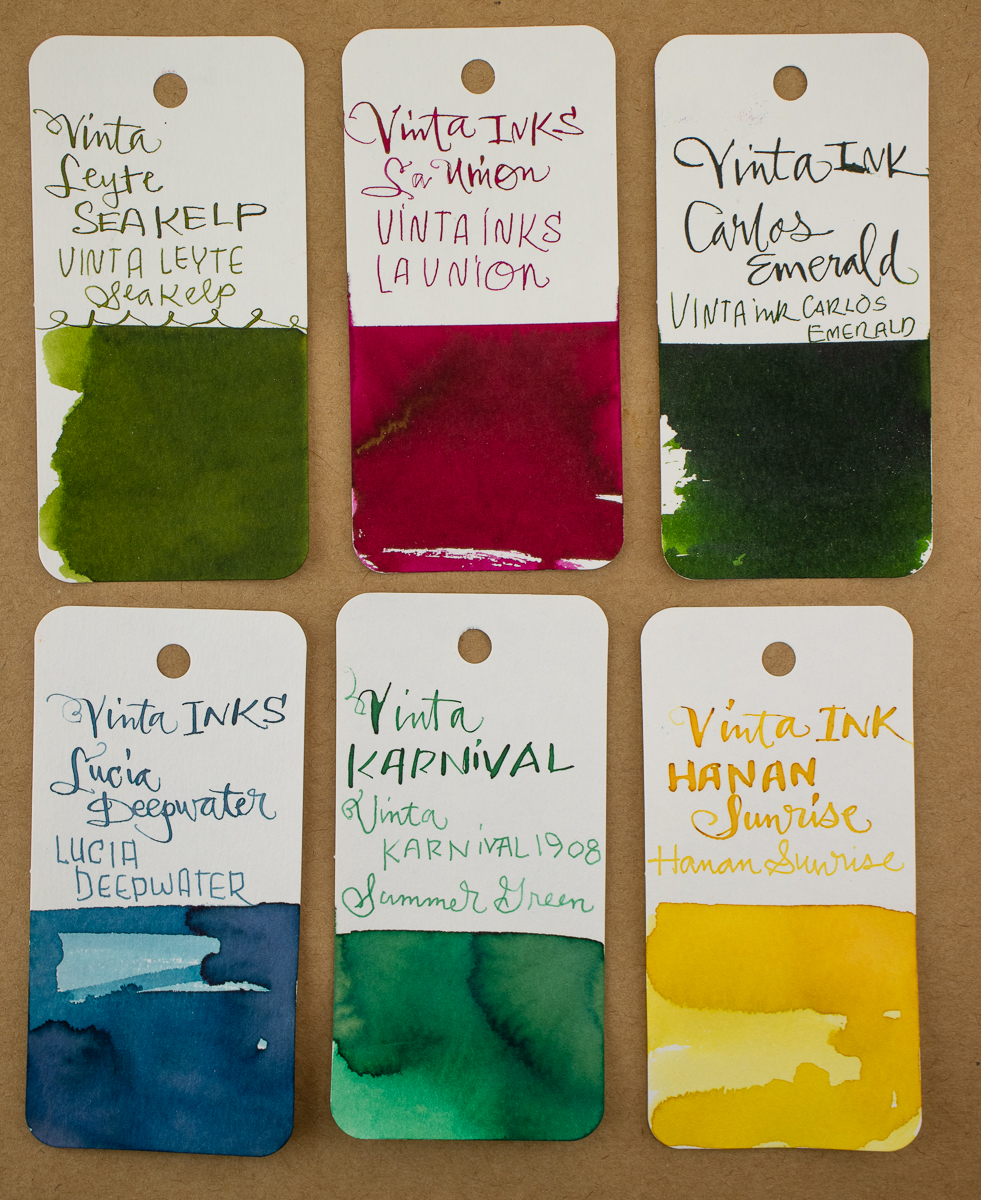 Vinta
Leyte
SEA KELP
VINTA LEYTE
Sea Kelp
Vinta INKS
La Union
VINTA INKS
LA UNION
Vinta INK
Carlos
Emerald
VINTA ink CARLOS
EMERALD
Vinta INKS
Lucia
Deepwater
LUCIA
DEEPWATER
Vinta
KARNIVAL
Vinta
KARNIVAL 1908
Summer Green
Vinta INK
HANAN
Sunrise
Hanan Sunrise